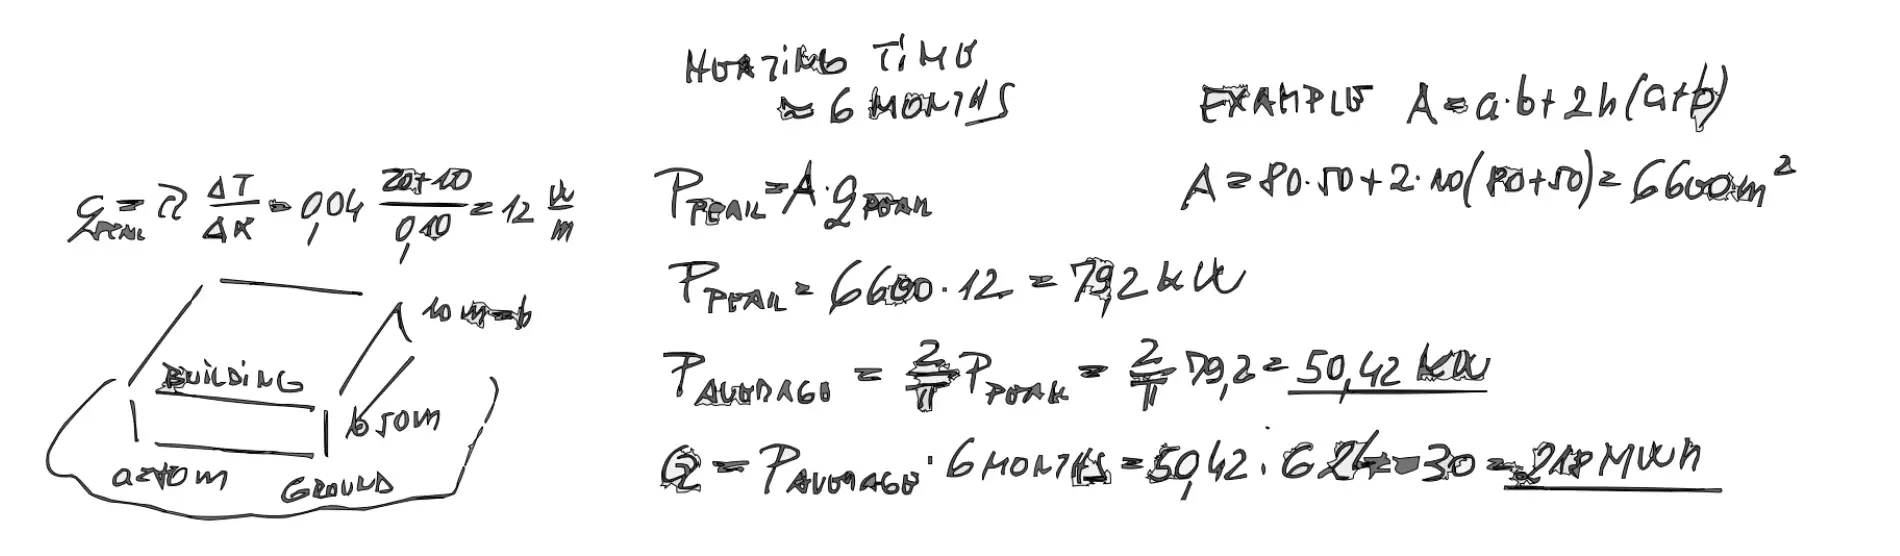 HEATING TIME
≈ 6 MONTHS
EXAMPLE A = a·b + 2h(a+b)
A = 80·50 + 2·10(80+50) = 6600 m²
q_PEAK = λ ΔT/ΔX = 0,04 (20+10)/0,10 = 12 W/m
P_PEAK = A · q_PEAK
P_PEAK = 6600 · 12 = 79,2 kW
P_AVERAGE = 2/π P_PEAK = 2/π 79,2 = 50,42 kW
Q = P_AVERAGE · 6 MONTHS = 50,42 · 6 24 30 = 218 MWh
10 m = h
BUILDING
b 50m
GROUND